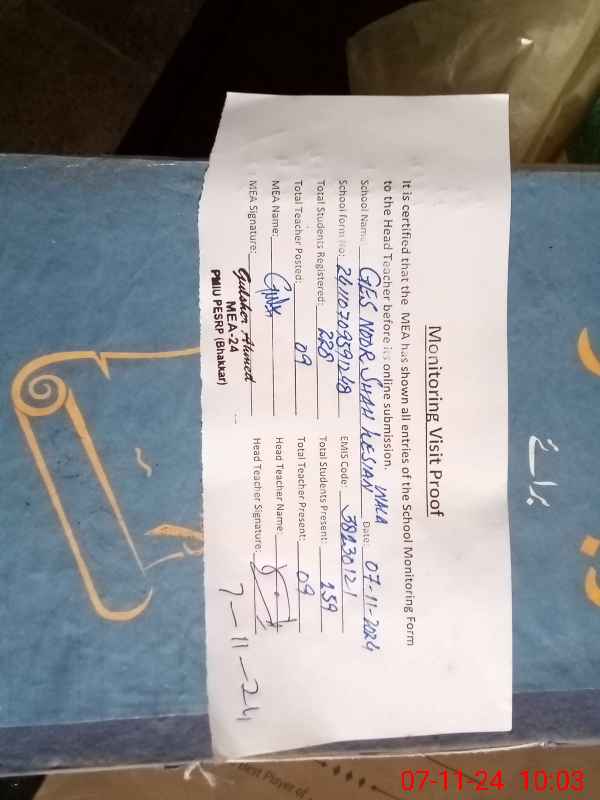 Monitoring Visit Proof
It is certified that the MEA has shown all entries of the School Monitoring Form
to the Head Teacher before its online submission.
School Name: GES NOOR SHAH WALA Date: 07-11-2024
School form No: EMIS Code: 38230121
Total Students Registered: 228 Total Students Present: 159
Total Teacher Posted: 09 Total Teacher Present: 09
MEA Name: Head Teacher Name:
MEA Signature: Head Teacher Signature:
Gulsher Ahmed
MEA-24
PMIU PESRP (Bhakkar)
7-11-24
Best Player of
07-11-24 10:03